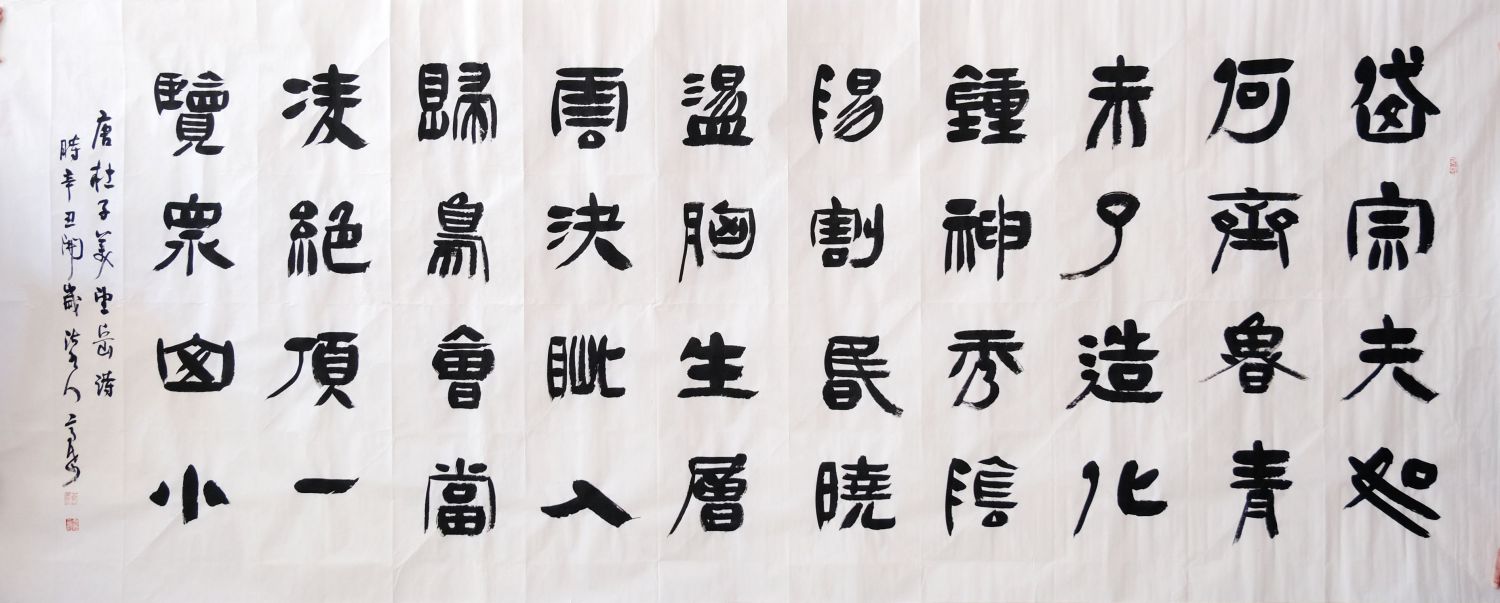 岱宗夫如
何齊魯青
未了造化
鍾神秀陰
陽割昬曉
盪胸生層
雲決眦入
歸鳥會當
凌絕頂一
覽衆山小
唐杜子美望岳詩
時辛丑開歲